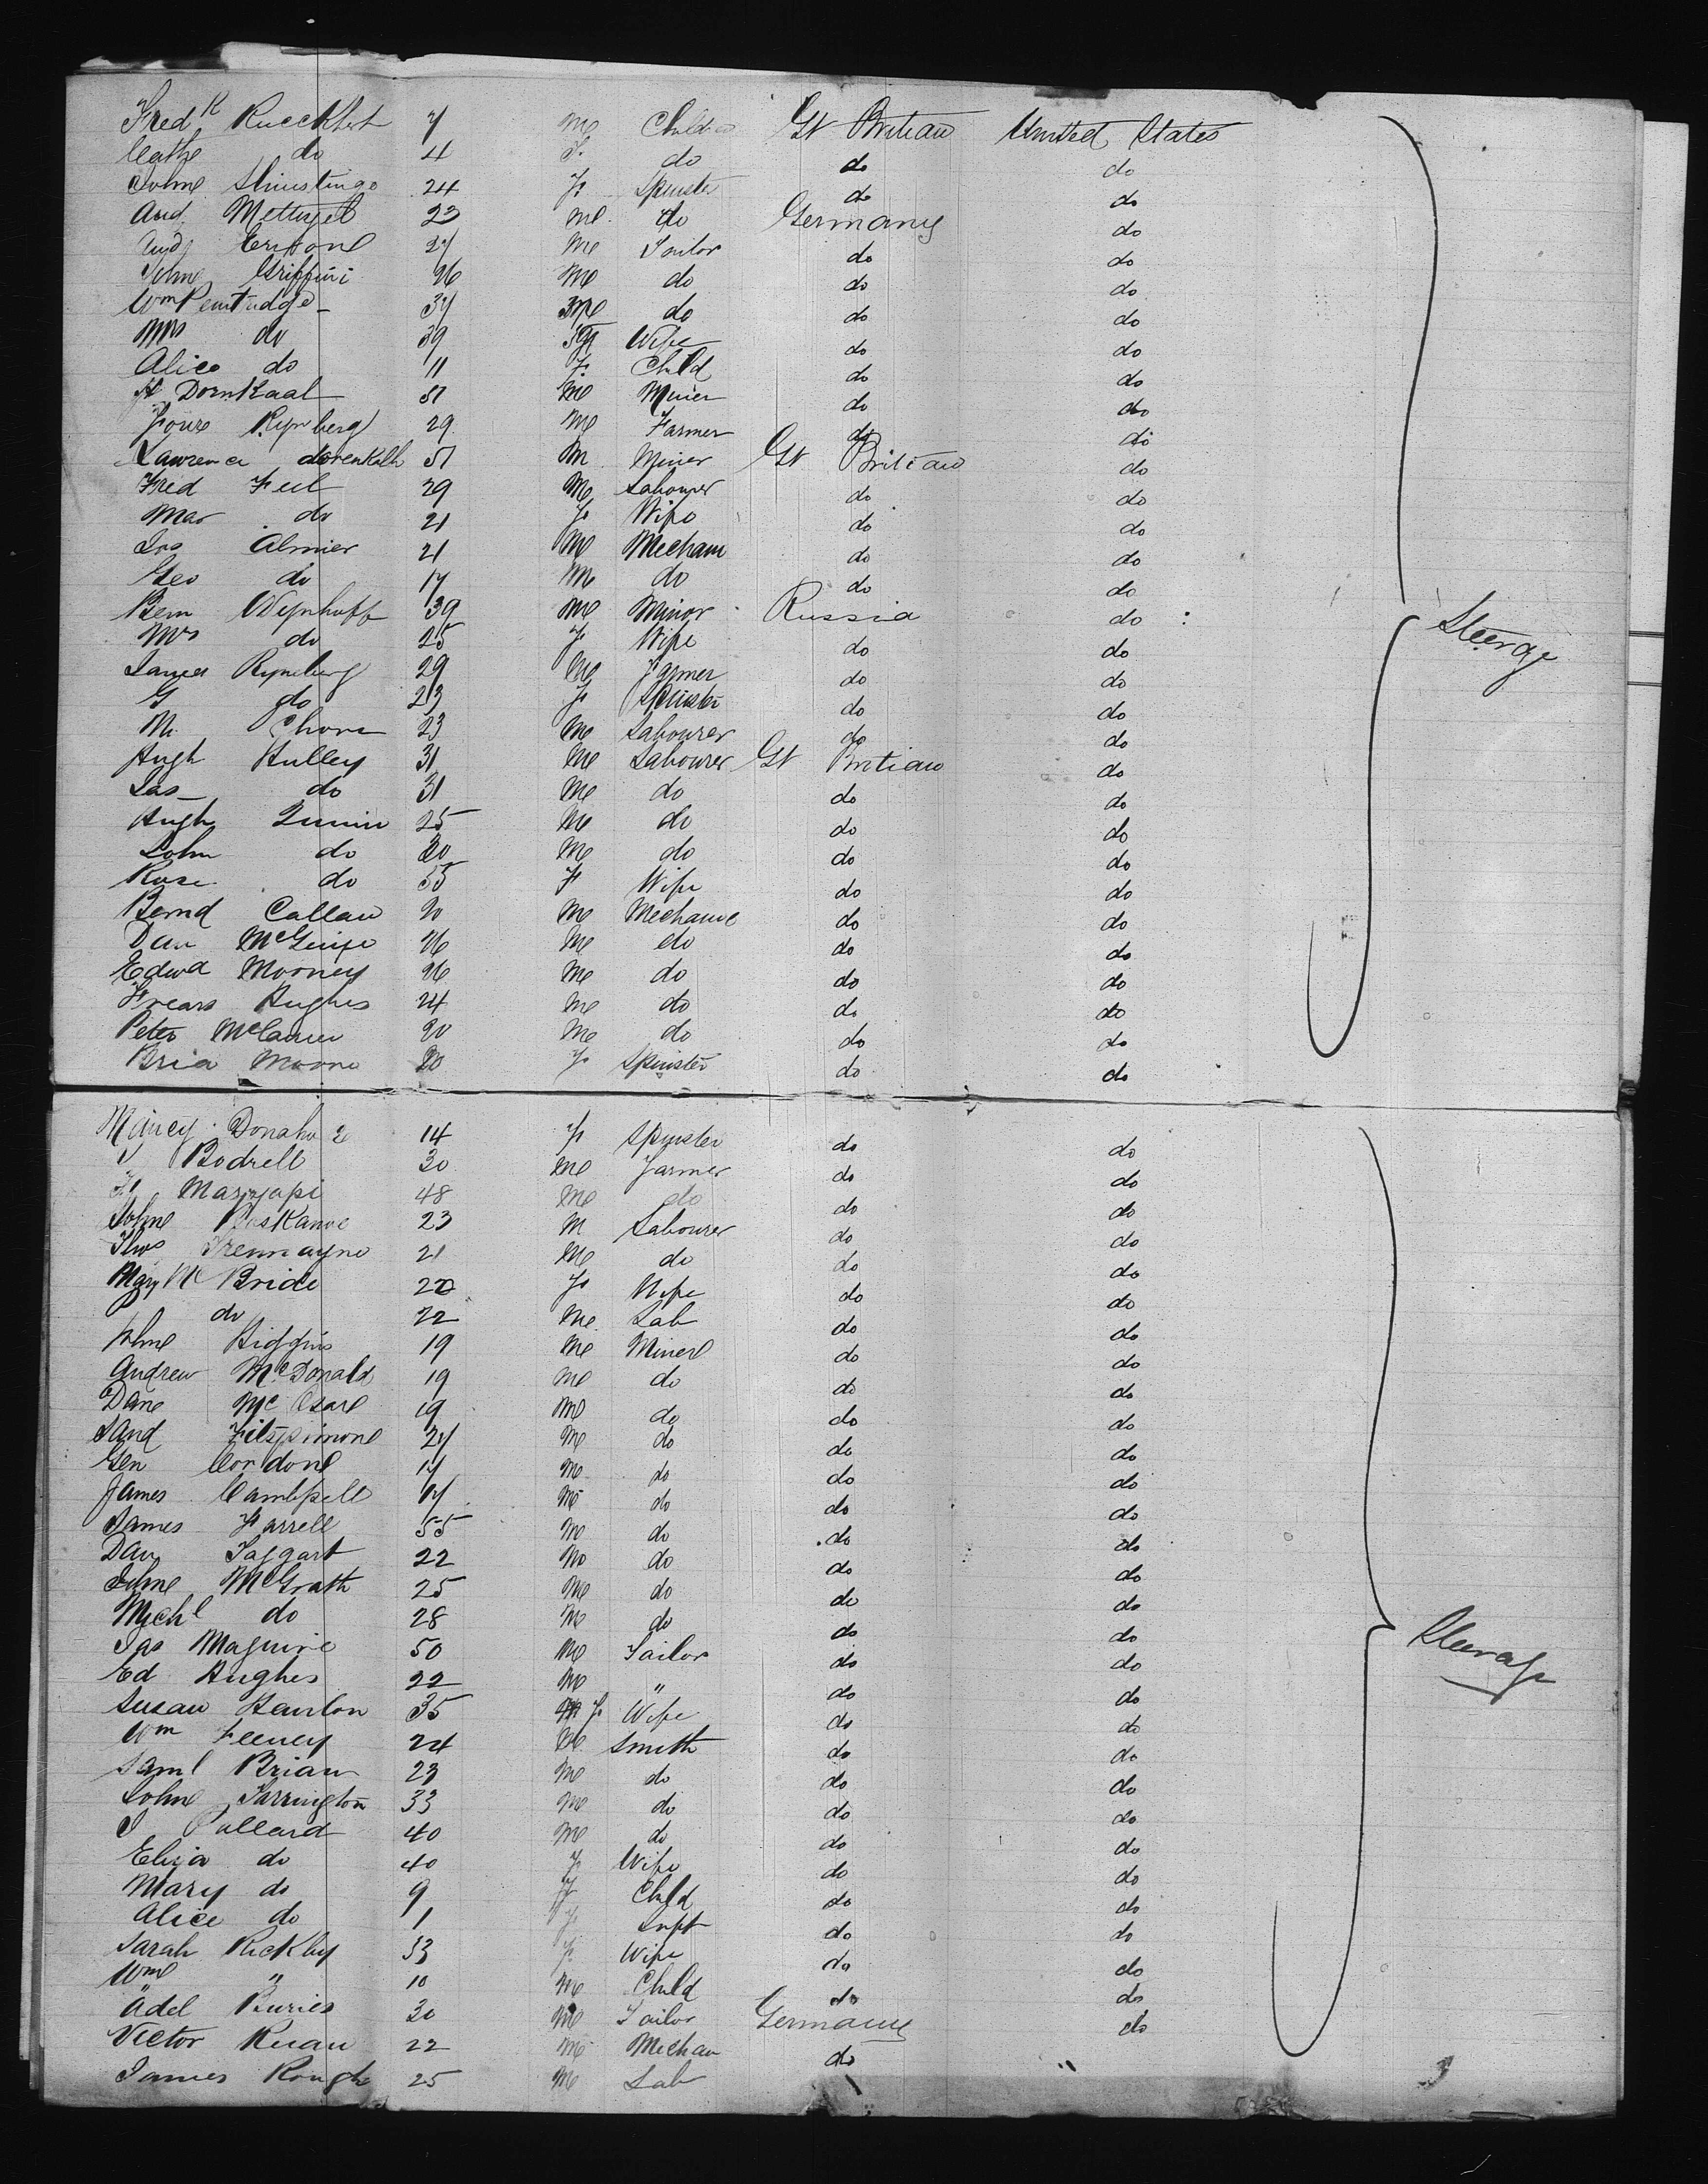 Fredk Rueckhert 7 M Children Gt Britian United States
Cathe do 4 F do do do
24 F Spinster do do
And 23 M do Germany do
And 27 M Tailor do do
John Griffini 26 M do do do
Wm Pentridge 37 M do do do
Mrs do 39 F Wife do do
Alice do 11 F Child do do
H Dornkaal 51 M Miner do do
Rynberg 29 M Farmer do do
Lawrence dorenkalh 51 M Miner Gt Britian do
Fred Feil 29 M Labourer do do
Mar do 21 F Wife do do
Jno Almier 21 M Mechani do do
Geo do 17 M do do do
Bern Wynhoff 39 M Minor Russia do
Mrs do 25 F Wife do do
James Rynberg 29 M Farmer do do
G do 23 F Spinster do do
M. Chore 23 M Labourer do do
Hugh Hulley 31 M Labourer Gt Britian do
Jas do 31 M do do do
Hugh Quinn 25 M do do do
John do 20 M do do do
Rose do 55 F Wife do do
Bernd Callan 20 M Mechanic do do
Dan McGuife 26 M do do do
Edwd Mooney 26 M do do do
Frears Hughes 24 M do do do
Peter McCann 20 M do do do
Bria Moore 20 F Spinster do do
Steerage
Mancy Donahue 14 F Spinster do do
J Bodrell 30 M Farmer do do
48 M do do do
John Poskanoe 23 M Labourer do do
Thos Tremayne 21 M do do do
Mary Mc Bride 22 F Wife do do
P do 22 M Lab do do
John Higgins 19 M Miner do do
Andrew McDonald 19 M do do do
Dane Mc 19 M do do do
Sand Fitzsimone 27 M do do do
Gen Cordone 17 M do do do
James Cambpell 67 M do do do
James Farrell 55 M do do do
Dan Taggart 22 M do do do
John McGrath 25 M do do do
Michl do 28 M do do do
Jas Maguire 50 M Tailor do do
Ed Hughes 22 M " do do
Susan Hanlon 35 F Wife do do
Wm Feeney 24 M Smith do do
Saml Brian 23 M do do do
John Farrington 33 M do do do
J Pollard 40 M do do do
Eliza do 40 F Wife do do
Mary do 9 F Child do do
Alice do 1 F Inft do do
Sarah Rickby 33 F Wife do do
Wm " 10 M Child do do
Adel Buries 30 M Tailor Germany do
Victor Ruan 22 M Mechan do "
James Rough 25 M Lab
Steerage
3